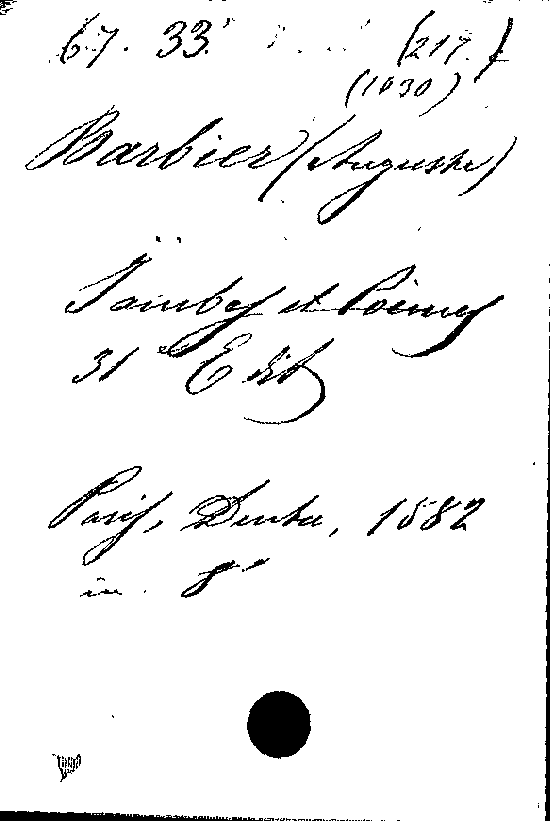 67. 33. (217.)
(1030)
Barbier (Auguste)
Iambes et Poëmes
31e Edit
Paris, Dentu, 1882
in. 8°